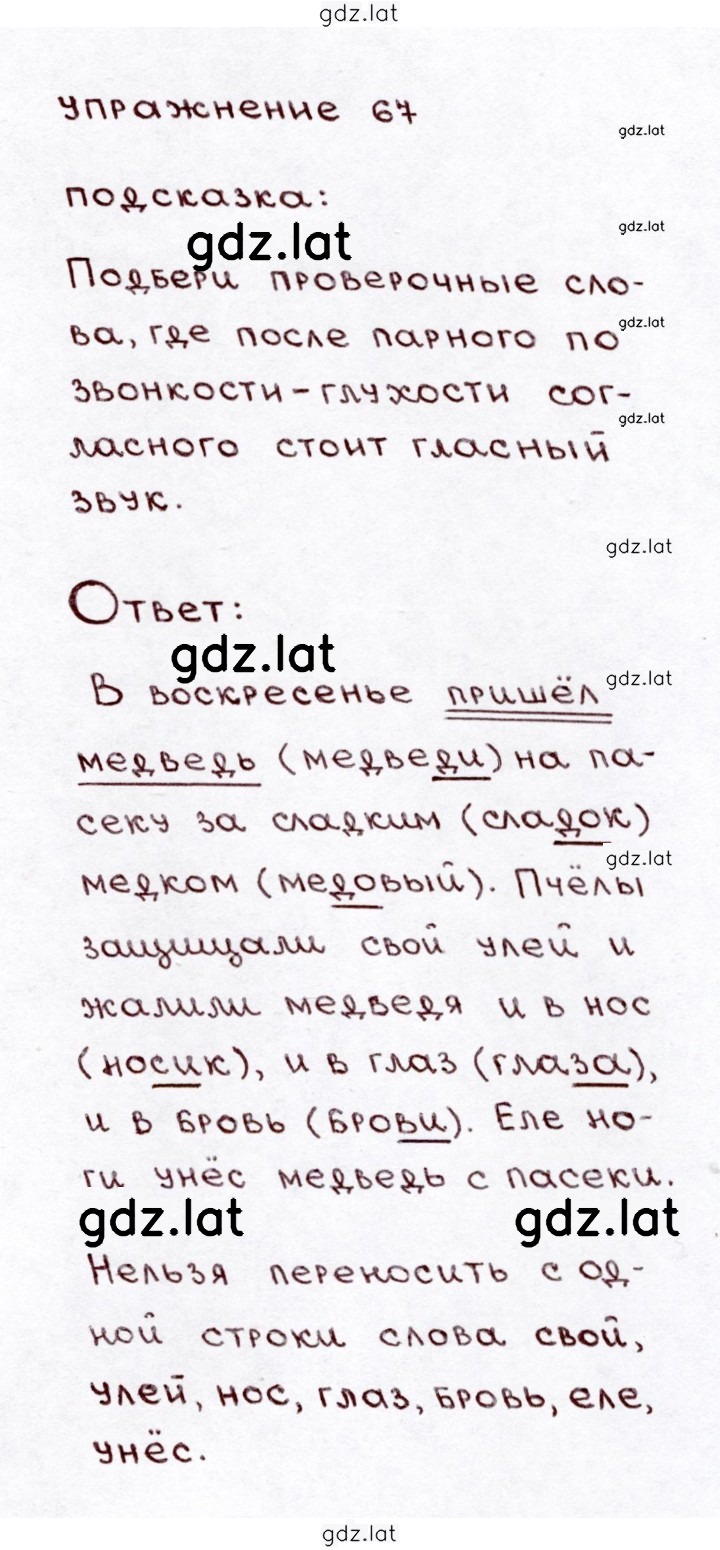 gdz.lat
упражнение 67
gdz.lat
подсказка:
gdz.lat
gdz.lat
Подбери проверочные сло-
gdz.lat
ва, где после парного по
звонкости-глухости сог-
gdz.lat
ласного стоит гласный
звук.
gdz.lat
Ответ:
gdz.lat
gdz.lat
В воскресенье пришёл
медведь (медведи) на па-
секу за сладким (сладок)
gdz.lat
медком (медовый). Пчёлы
защищали свой улей и
жалили медведя и в нос
(носик), и в глаз (глаза),
и в бровь (брови). Еле но-
ги унёс медведь с пасеки.
gdz.lat gdz.lat
Нельзя переносить с од-
ной строки слова свой,
улей, нос, глаз, бровь, еле,
унёс.
gdz.lat